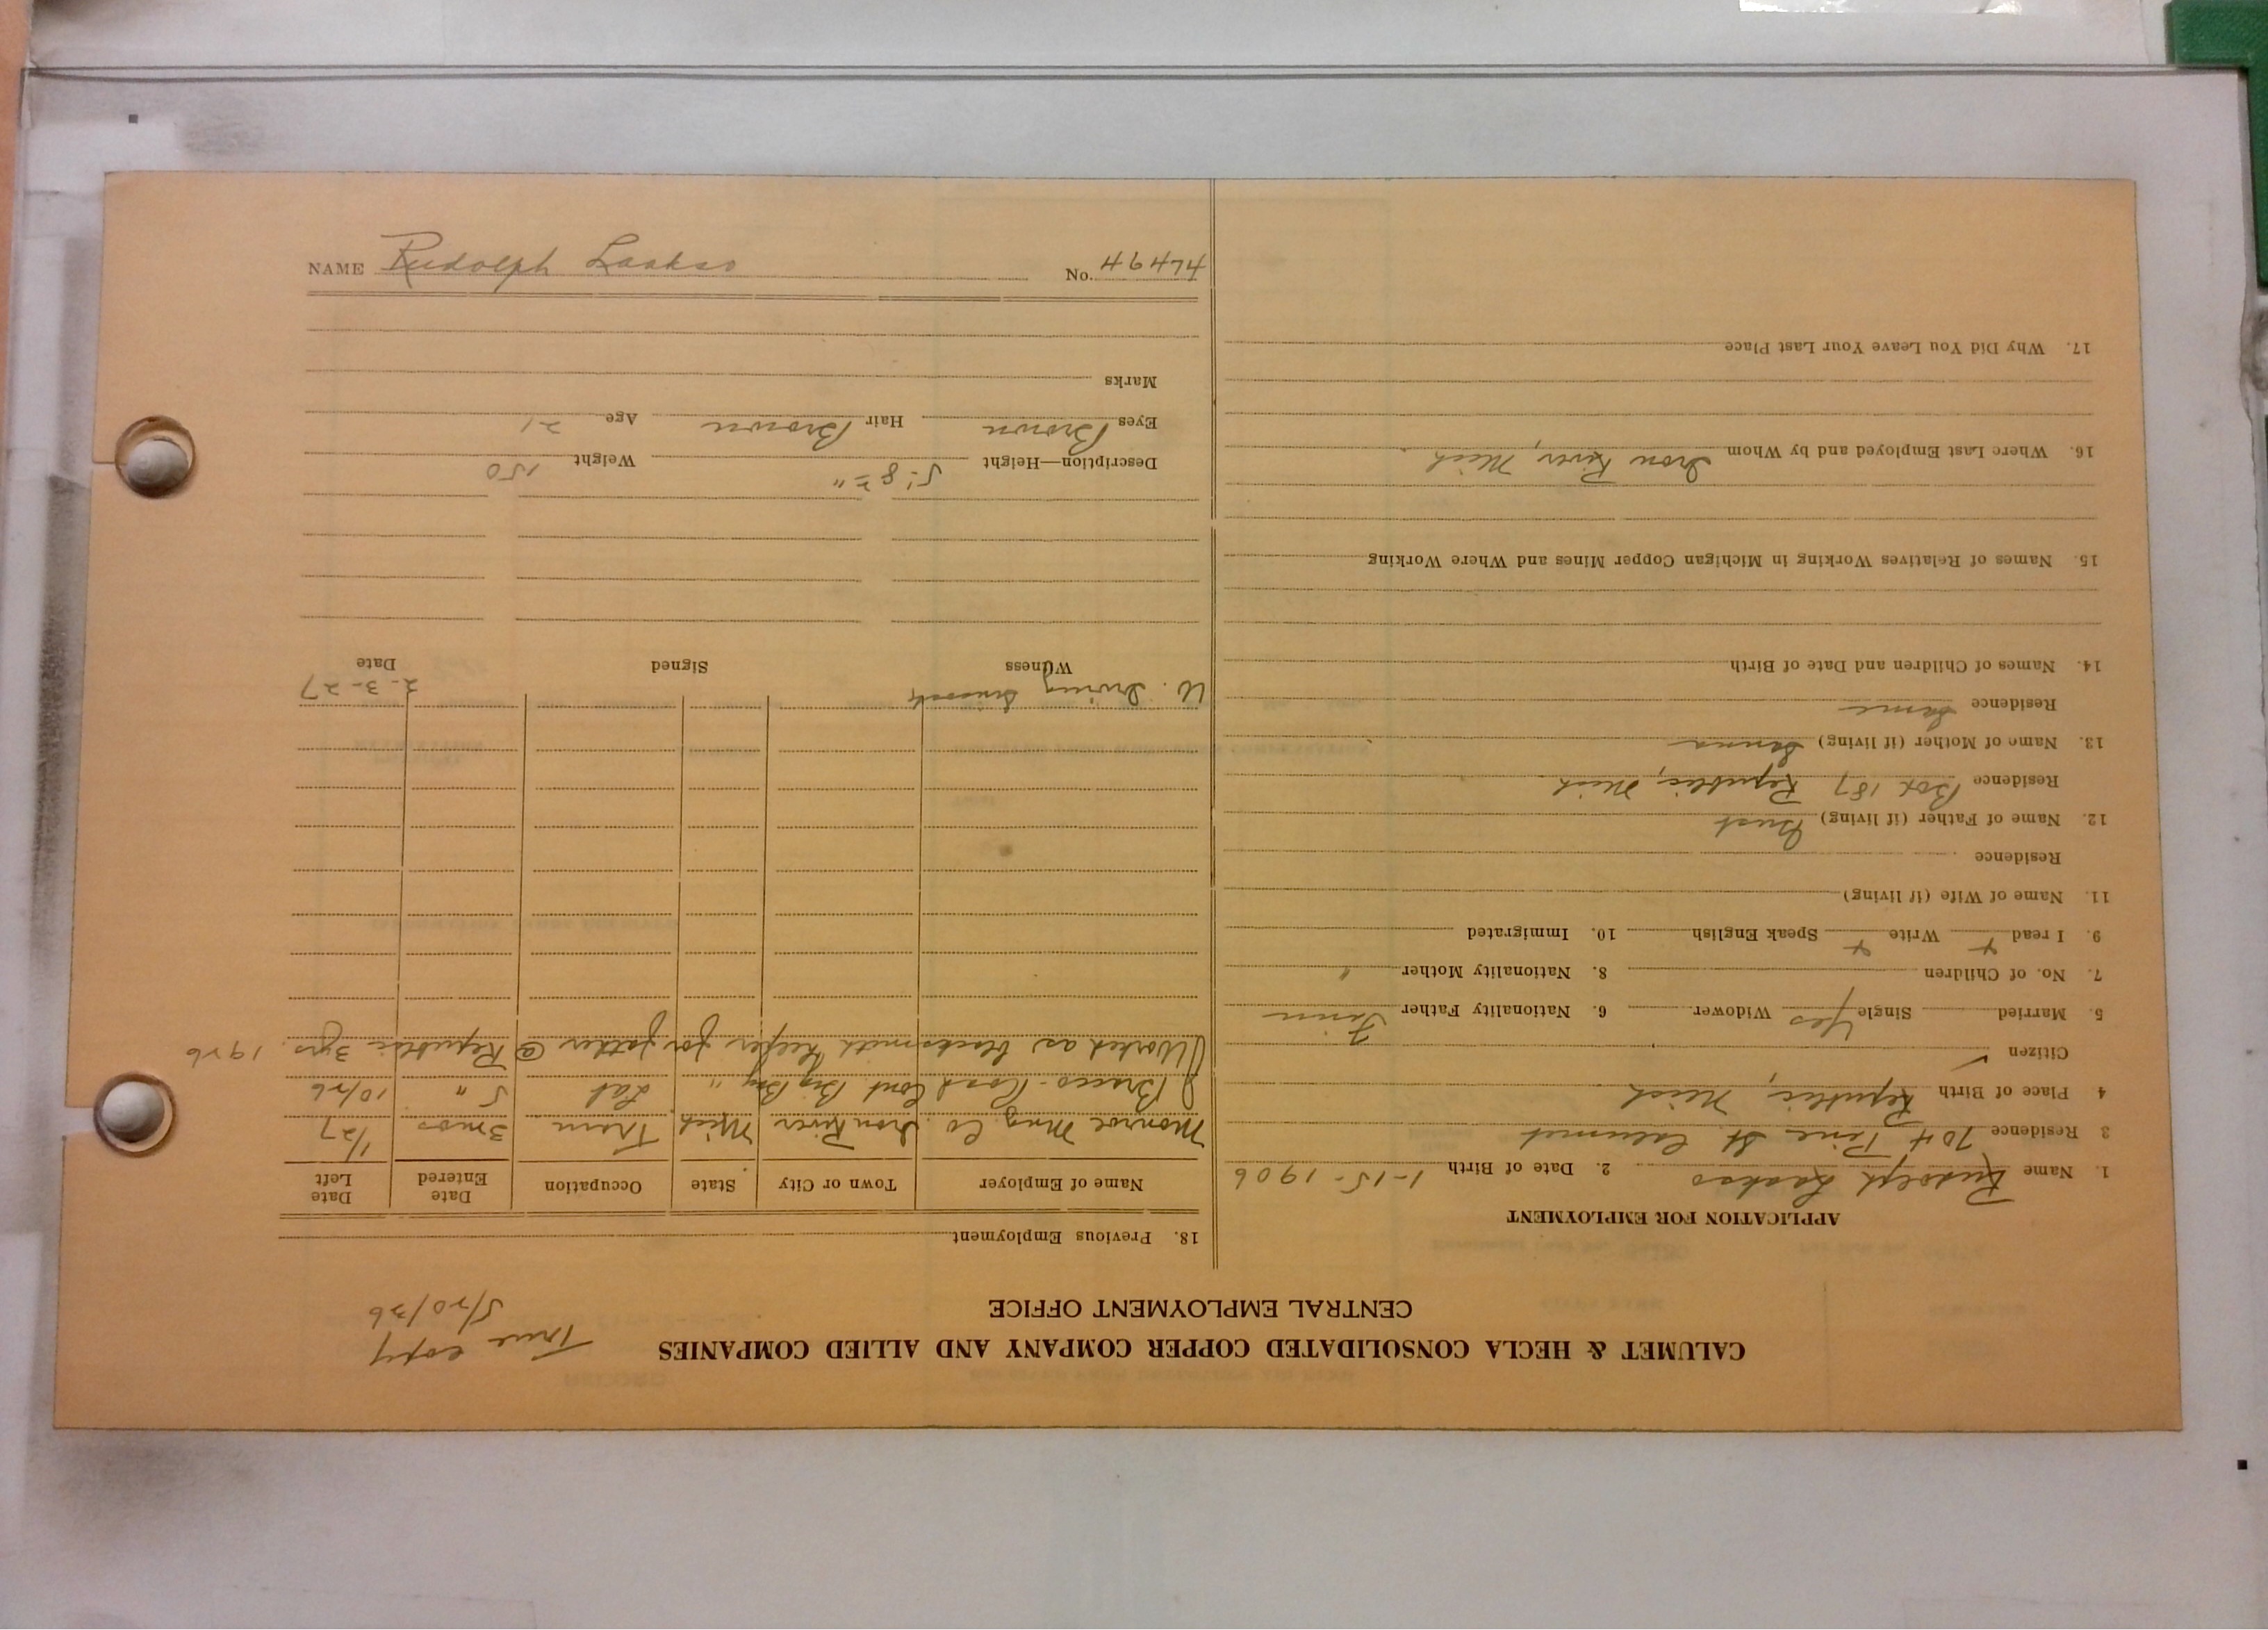 NAME Rudolph Laakso No. 49474
CALUMET & HECLA CONSOLIDATED COPPER COMPANY AND ALLIED COMPANIES
CENTRAL EMPLOYMENT OFFICE
True copy
5/20/36
APPLICATION FOR EMPLOYMENT
1. Name Rudolph Laakso 2. Date of Birth 1-15-1906
3 Residence 704 Pine St. Calumet
4 Place of Birth Republic, Mich
Citizen ✓
5. Married Single Yes Widower 6. Nationality Father Finn
7. No. of Children 8. Nationality Mother "
9. I read + Write + Speak English 10. Immigrated
11. Name of Wife (if living)
Residence
12. Name of Father (if living) Gust
Residence Box 187 Republic, Mich
13. Name of Mother (if living)
Residence Same
14. Names of Children and Date of Birth
15. Names of Relatives Working in Michigan Copper Mines and Where Working
16. Where Last Employed and by Whom Iron River, Mich
17. Why Did You Leave Your Last Place
18. Previous Employment
Name of Employer Town or City State Occupation Date Entered Date Left
Monroe Mng. Co. Iron River Mich Tram 3 mos 1/27
Road Cont Big Bay " Lab 5 " 10/26
(Worked as blacksmith helper for father @ Republic 3 yrs. 1926
W. Irving 2-3-27
Witness Signed Date
Description—Height 5'-8½" Weight 150
Eyes Brown Hair Brown Age 21
Marks